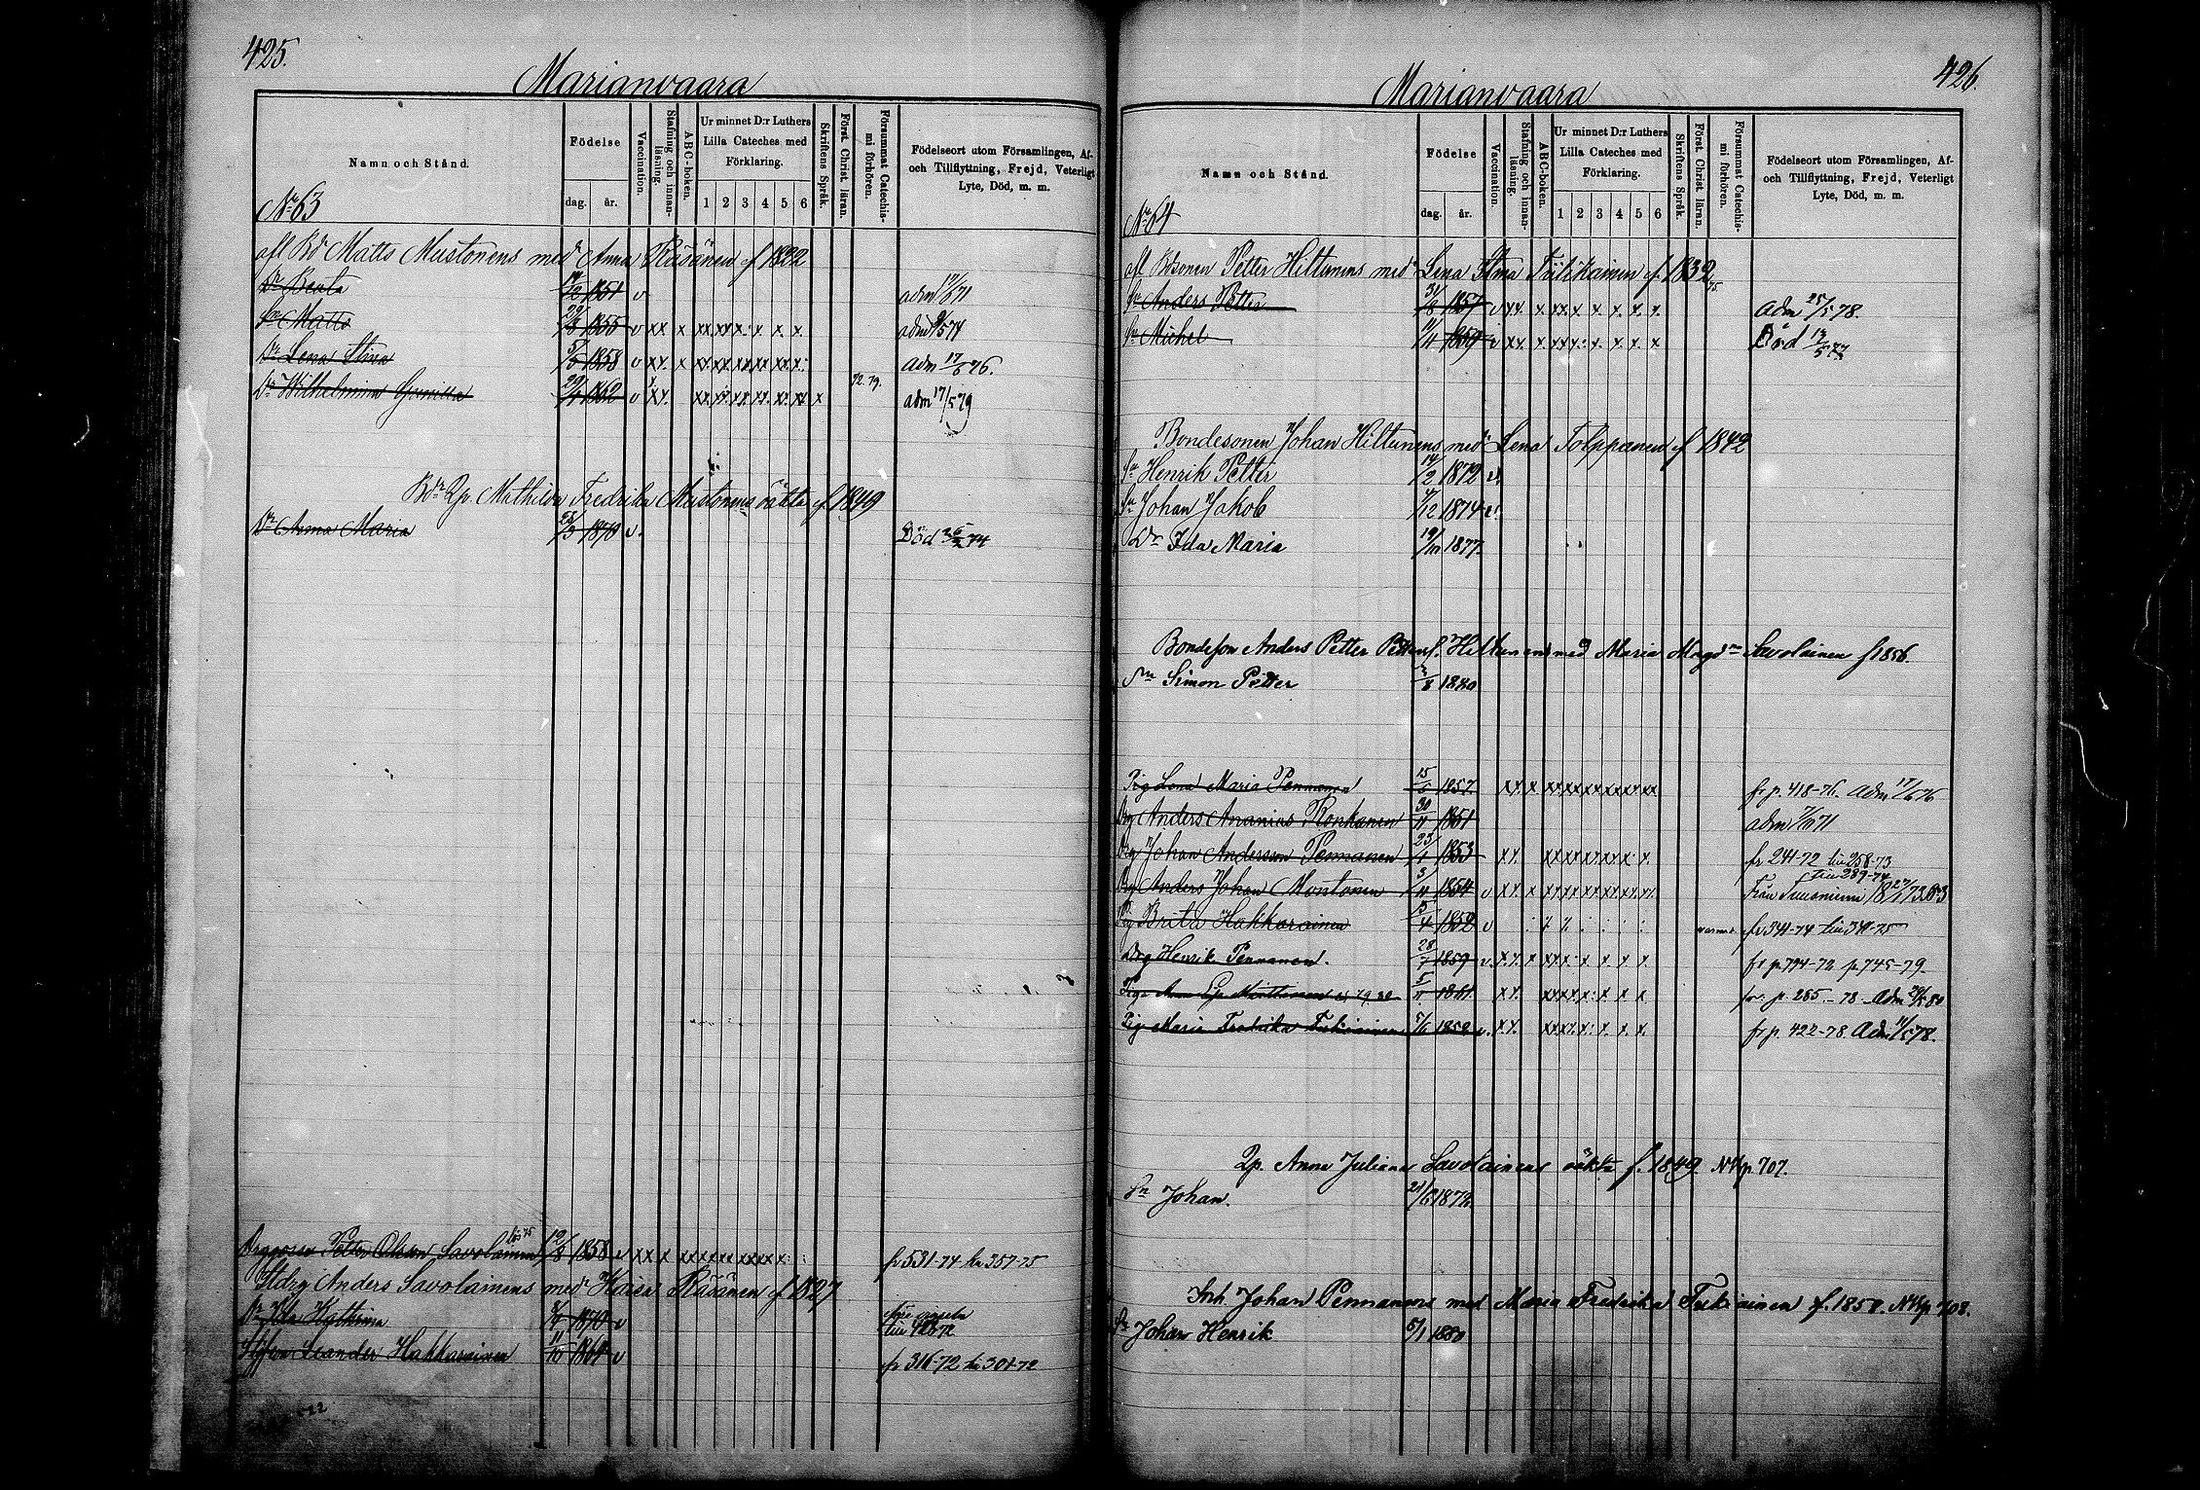 425.
Marianvaara
Namn och Stånd.
Födelse
dag. år.
Vaccination.
Stafning och innanläsning.
ABC-boken.
Ur minnet D:r Luthers Lilla Cateches med Förklaring.
1 2 3 4 5 6
Skriftens Språk.
Först. Christ. läran.
Försummat Catechismi förhören.
Födelseort utom Församlingen, Af- och Tillflyttning, Frejd, Veterligt Lyte, Död, m. m.
No 63
afl Bd Matts Mustonens med Anna Räsänen f 1822
Dr Beata 1851 v adm 71
Sn Matts 29/8 1855 v xx x adm 74
Dr Lena Stina 5/5 1858 v xx x adm 17/6 76.
Dr Wilhelmina 29/4 1862 v xx 72. 79. adm 17/5 79
Bdr Qp. Mathilda Fredrika Mustonens oäkta f 1849
Dr Anna Maria 23/3 1870 v. Död 74
Drggosse Petter Olsson Savolainen 12/8 1858 v xx x fr 531-74 tw 357-75
Stdrg Anders Savolainens med Kaisa Räsänen f 1827
Dr Ida Kathrina 1870 v
Leander Hakkarainen 11/10 1861 v fr 316-72 tw 301-72
426.
Marianvaara
Namn och Stånd.
Födelse
dag. år.
Vaccination.
Stafning och innanläsning.
ABC-boken.
Ur minnet D:r Luthers Lilla Cateches med Förklaring.
1 2 3 4 5 6
Skriftens Språk.
Först. Christ läran.
Försummat Catechismi förhören.
Födelseort utom Församlingen, Af- och Tillflyttning, Frejd, Veterligt Lyte, Död, m. m.
No 64
afl Bdsonen Petter Hiltunens med Lena Stina Tiilikainen f. 1832
Sn Anders Petter 31/8 1857 v xx x adm 25/5 78.
Sn Michel 11/11 1859 v xx x Död 13/5 77
Bondesonen Johan Hiltunens med Lena Tolppanen f 1842
Sn Henrik Petter 14/2 1872 v
Sn Johan Jakob 4/12 1874 v
Dr Ida Maria 19/10 1877.
Bondeson Anders Petter Petterss. Hiltunens med Maria Magdna Savolainen f 1856.
Sn Simon Petter 2/8 1880
Pig Lena Maria Pennanen 15/5 1857 xx x fr p. 418-76. adm 17/6 76
Drg Anders Ananias Ronkanen 30/11 1851 adm 71
Drg Johan Andersson Pennanen 23/1 1853 xx fr 241-72 tw 258-73
Drg Anders Johan Montonen 3/11 1854 v xx x tw 289-74
Från Tuusniemi
Pig Brita Hakkarainen 15/4 1852 v fr 341-74 tw 341-75
Drg Henrik Pennanen. 28/7 1859 v xx x fr p 794-72 p 745-79.
Piga Anna 5/11 1861 xx for p. 285-78. Adm 80
Pig Maria Fredrika Tukiainen 5/6 1858 v. xx fr p. 422-78. Adm 11/5 78.
Qp. Anna Juliana Savolainens oäkta f. 1849 NKp 707.
Sn Johan. 21/6 1872.
Inh. Johan Pennanens med Maria Fredrika Tukiainen f. 1858. NKp 708.
Sn Johan Henrik 5/1 1880